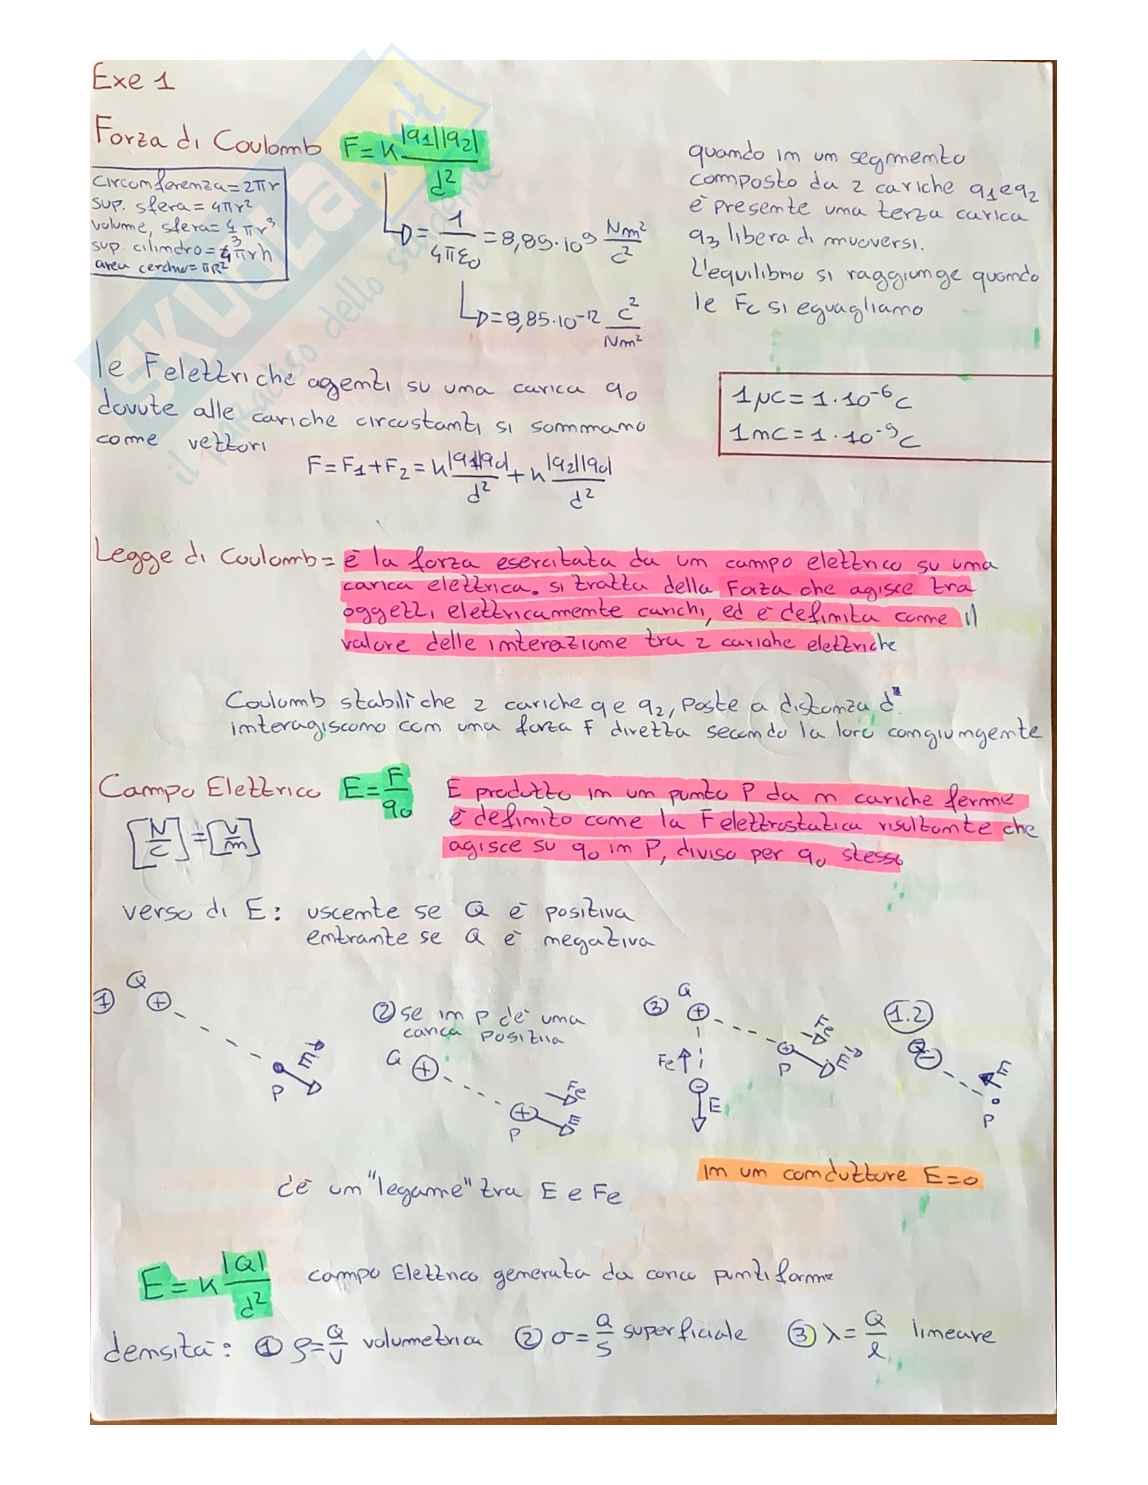 Exe 1
Forza di Coulomb F=K |q1||q2| / d²
circonferenza=2πr
sup. sfera=4πr²
volume, sfera=4/3 πr³
sup cilindro=2πrh
area cerchio=πR²
= 1/4πε0 = 8,89·10⁹ Nm²/C²
= 8,85·10⁻¹² C²/Nm²
quando in un segmento
composto da 2 cariche q1 e q2
è presente una terza carica
q3 libera di muoversi.
L'equilibrio si raggiunge quando
le Fc si eguagliano
le Felettriche agenti su una carica q0
dovute alle cariche circostanti si sommano
come vettori
F=F1+F2=K |q1||q0|/d² + K |q2||q0|/d²
1μC=1·10⁻⁶C
1nC=1·10⁻⁹C
Legge di Coulomb= è la forza esercitata da un campo elettrico su una
carica elettrica. si tratta della Forza che agisce tra
oggetti elettricamente carichi, ed è definita come il
valore delle interazione tra 2 cariche elettriche
Coulomb stabilì che 2 cariche q e q2, poste a distanza d
interagiscono con una forza F diretta secondo la loro congiungente
Campo Elettrico E=F/q0
[N/C]=[V/m]
E prodotto in un punto P da n cariche ferme
è definito come la F elettrostatica risultante che
agisce su q0 in P, diviso per q0 stesso
verso di E: uscente se Q è positiva
entrante se Q è negativa
1 Q + E P
2 se in P c'è una
carica positiva
Q + + Fe E P
3 Q + Fe - E + Fe E P
1.2 Q - E P
in un conduttore E=0
c'è un "legame" tra E e Fe
E=K |Q|/d² campo Elettrico generata da carica puntiforme
densità: 1 ρ=Q/V volumetrica 2 σ=Q/S superficiale 3 λ=Q/l lineare
SKUOLA.net
il paradiso dello studente